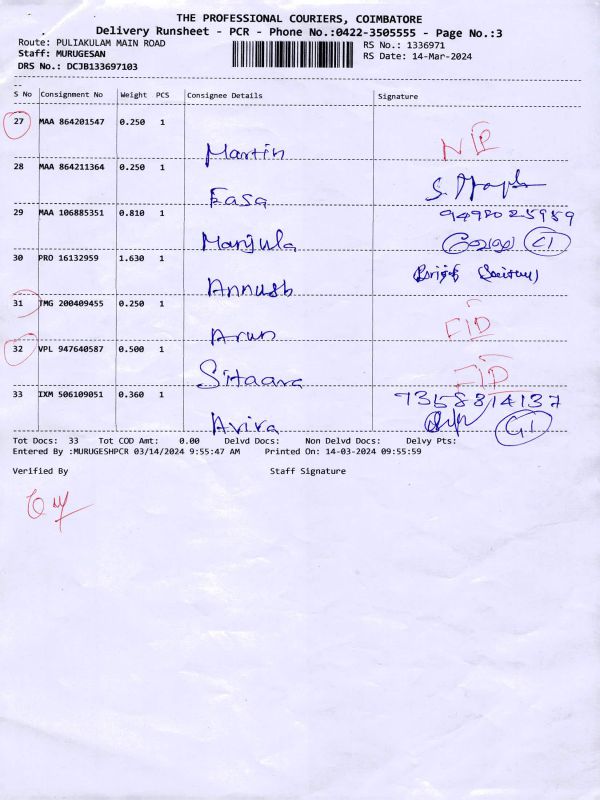 THE PROFESSIONAL COURIERS, COIMBATORE
Delivery Runsheet - PCR - Phone No.:0422-3505555 - Page No.:3
Route: PULIAKULAM MAIN ROAD
Staff: MURUGESAN
DRS No.: DCJB133697103
RS No.: 1336971
RS Date: 14-Mar-2024
S No Consignment No Weight PCS Consignee Details Signature
27 MAA 864201547 0.250 1
Martin
28 MAA 864211364 0.250 1
Easa
29 MAA 106885351 0.810 1 9498025959
Manjula
30 PRO 16132959 1.630 1
Annush
31 TMG 200409455 0.250 1
Arun FID
32 VPL 947640587 0.500 1
Sitaara FID
33 IXM 506109051 0.360 1 7358814137
Avira
Tot Docs: 33 Tot COD Amt: 0.00 Delvd Docs: Non Delvd Docs: Delvy Pts:
Entered By :MURUGESHPCR 03/14/2024 9:55:47 AM Printed On: 14-03-2024 09:55:59
Verified By Staff Signature